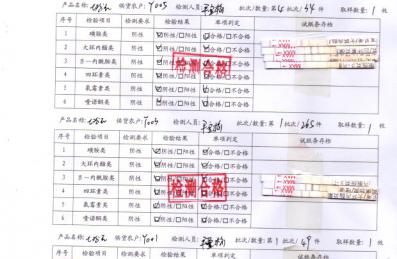 产品名称: 供货农户: Y005 检测人员: 批次/数量: 第 批次/54 件 取样数量: 1 枚
序号 检验项目 检测要求 检验结果 单项判定 试纸条存档
1 磺胺类 阴性 ☑阴性/□阳性 ☑合格/□不合格
2 大环内酯类 阴性 ☑阴性/□阳性 ☑合格/□不合格
3 β-内酰胺类 阴性 ☑阴性/□阳性 ☑合格/□不合格
4 四环素类 阴性 ☑阴性/□阳性 ☑合格/□不合格
5 氟霉素类 阴性 ☑阴性/□阳性 ☑合格/□不合格
6 喹诺酮类 阴性 ☑阴性/□阳性 ☑合格/□不合格
检测合格
产品名称: 供货农户: Y003 检测人员: 批次/数量: 第 1 批次/265 件 取样数量: 1 枚
序号 检验项目 检测要求 检验结果 单项判定 试纸条存档
1 磺胺类 阴性 ☑阴性/□阳性 ☑合格/□不合格
2 大环内酯类 阴性 ☑阴性/□阳性 ☑合格/□不合格
3 β-内酰胺类 阴性 ☑阴性/□阳性 ☑合格/□不合格
4 四环素类 阴性 ☑阴性/□阳性 ☑合格/□不合格
5 氟霉素类 阴性 ☑阴性/□阳性 ☑合格/□不合格
6 喹诺酮类 阴性 ☑阴性/□阳性 ☑合格/□不合格
检测合格
产品名称: 供货农户: Y001 检测人员: 批次/数量: 第 1 批次/49 件 取样数量: 1 枚
序号 检验项目 检测要求 检验结果 单项判定 试纸条存档